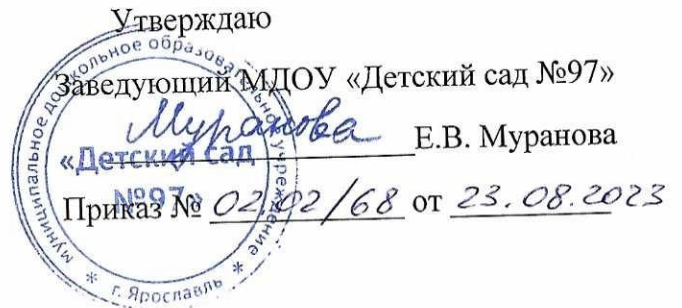 Утверждаю
Заведующий МДОУ «Детский сад №97»
Муранова Е.В. Муранова
Приказ № 02-02/68 от 23.08.2023
муниципальное дошкольное образовательное учреждение
«Детский сад
№97»
* г. Ярославль *